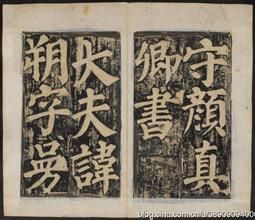 守顔真
卿書
大夫諱
朔字曼
blog.sina.com.cn/u/3890909400